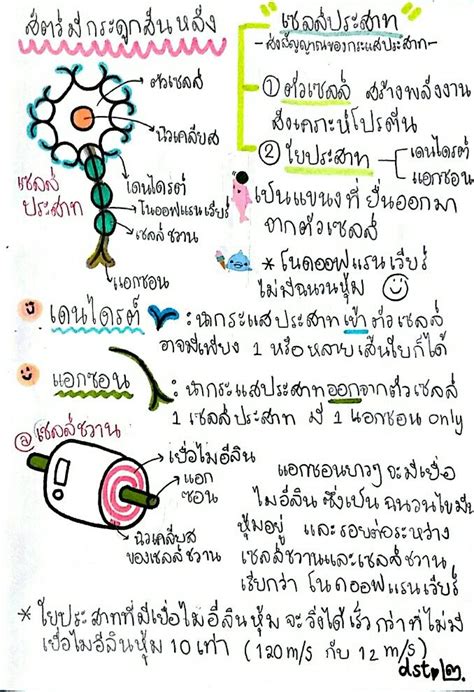 สัตว์มีกระดูกสันหลัง
เซลล์ประสาท
-ส่งสัญญาณของกระแสประสาท-
ตัวเซลล์
นิวเคลียส
เดนไดรต์
โนดออฟแรนเวียร์
เซลล์ชวาน
แอกซอน
เซลล์
ประสาท
① ตัวเซลล์ สร้างพลังงาน
สังเคราะห์โปรตีน
② ใยประสาท
เดนไดรต์
แอกซอน
เป็นแขนงที่ยื่นออกมา
จากตัวเซลล์
* โนดออฟแรนเวียร์
ไม่มีฉนวนหุ้ม
เดนไดรต์ : นำกระแสประสาทเข้าตัวเซลล์
อาจมีเพียง 1 หรือหลายเส้นใยก็ได้
แอกซอน : นำกระแสประสาทออกจากตัวเซลล์
1 เซลล์ประสาท มี 1 แอกซอน only
@เซลล์ชวาน
เยื่อไมอีลิน
แอก
ซอน
นิวเคลียส
ของเซลล์ชวาน
แอกซอนบางๆ จะมีเยื่อ
ไมอีลิน ซึ่งเป็น ฉนวนไขมัน
หุ้มอยู่ และรอยต่อระหว่าง
เซลล์ชวานและเซลล์ชวาน
เรียกว่า โนดออฟแรนเวียร์
* ใยประสาทที่มีเยื่อไมอีลินหุ้ม จะวิ่งได้เร็วกว่าที่ไม่มี
เยื่อไมอีลินหุ้ม 10 เท่า (120 m/s กับ 12 m/s)
dst♥๒.